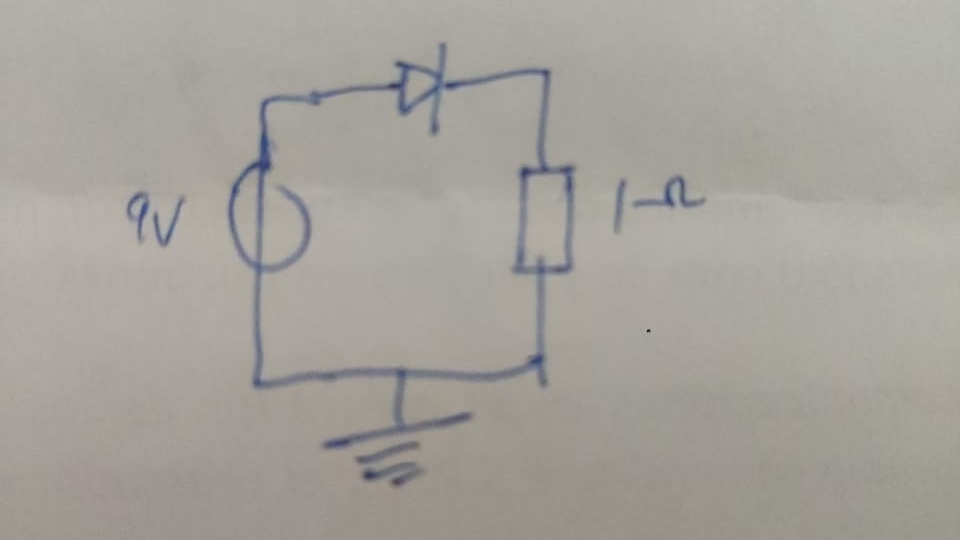 9V
1Ω